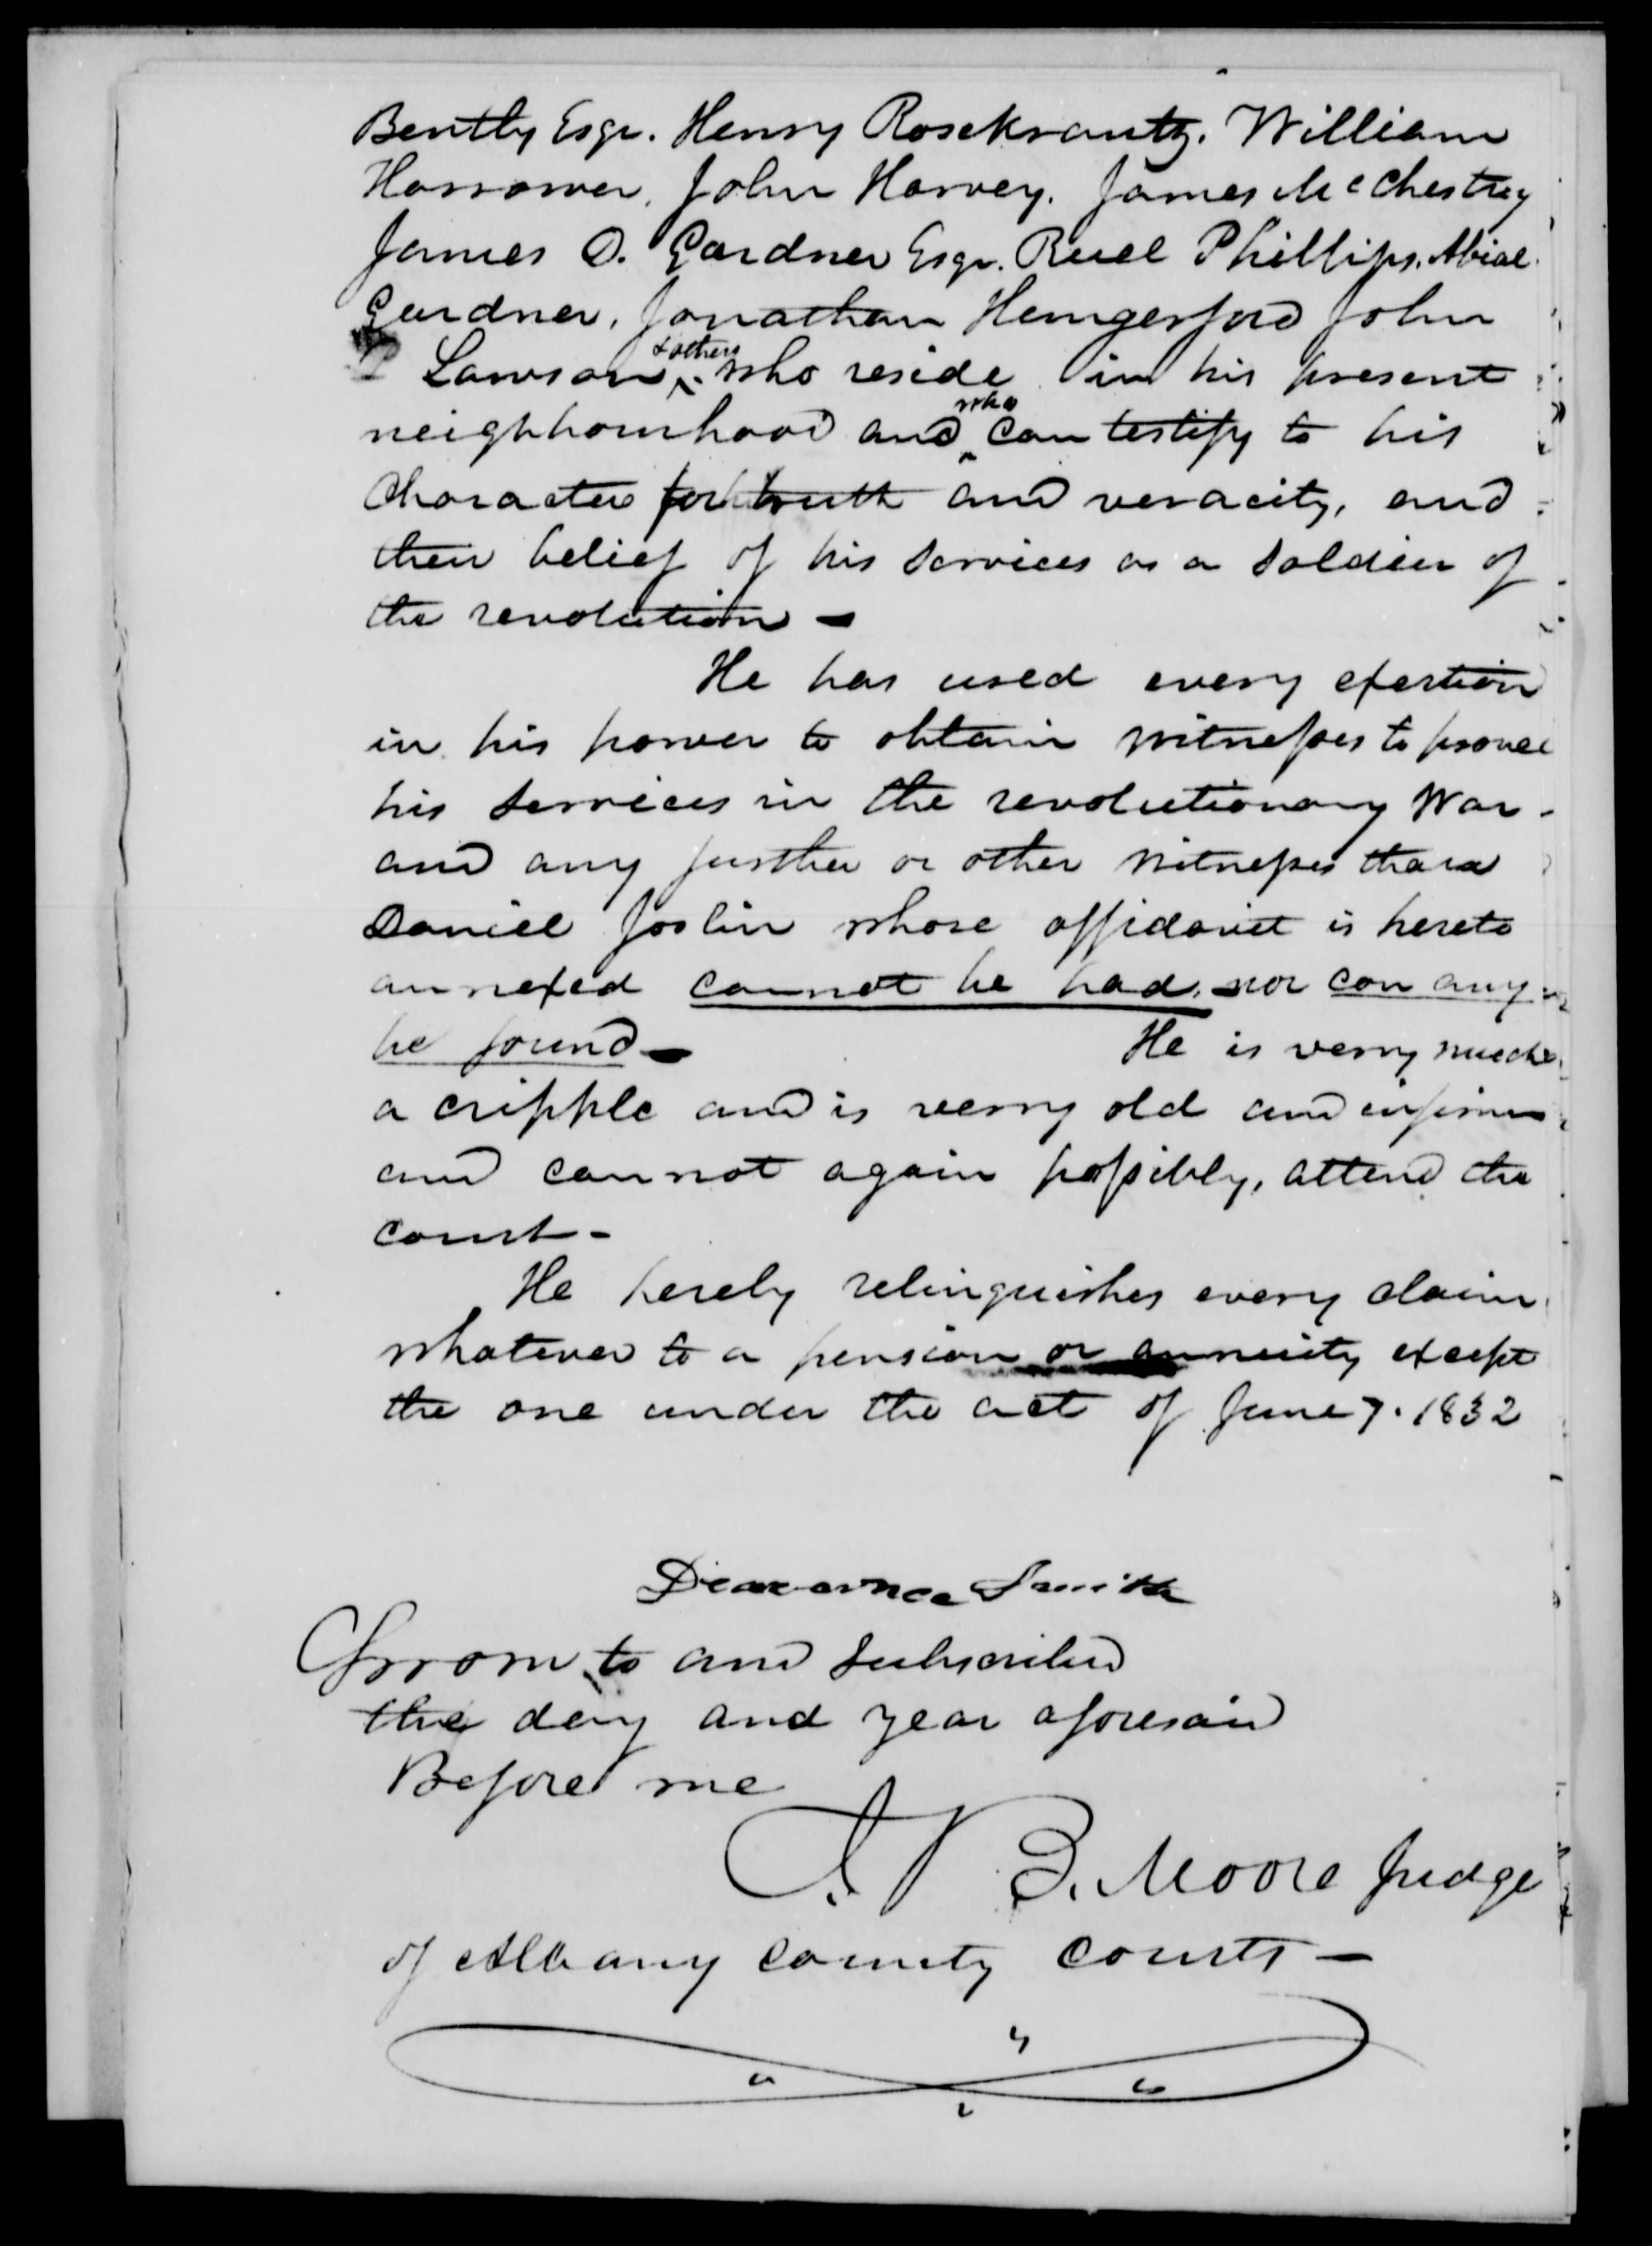 Bently Esqr. Henry Rosekrantz. William
Harrower, John Harvey. James McChestney
James O. Gardner Esqr. Ruel Phillips. Abial
Gardner, Jonathan Hungerford John
Lawson & others who reside in his present
neighbourhood and who can testify to his
Character for truth and veracity, and
their belief of his services as a soldier of
the revolution -
He has used every exertion
in his power to obtain witnesses to prove
his services in the revolutionary War -
and any further or other witnesses than
Daniel Joslin whose affidavit is hereto
annexed cannot be had, nor can any
be found - He is verry much
a cripple and is verry old and infirm
and cannot again possibly, attend the
court -
He hereby relinquishes every claim
whatever to a pension or annuity except
the one under the act of June 7. 1832
Smith
Sworn to and subscribed
the day and year aforesaid
Before me
B. Moore Judge
of Albany County Courts -